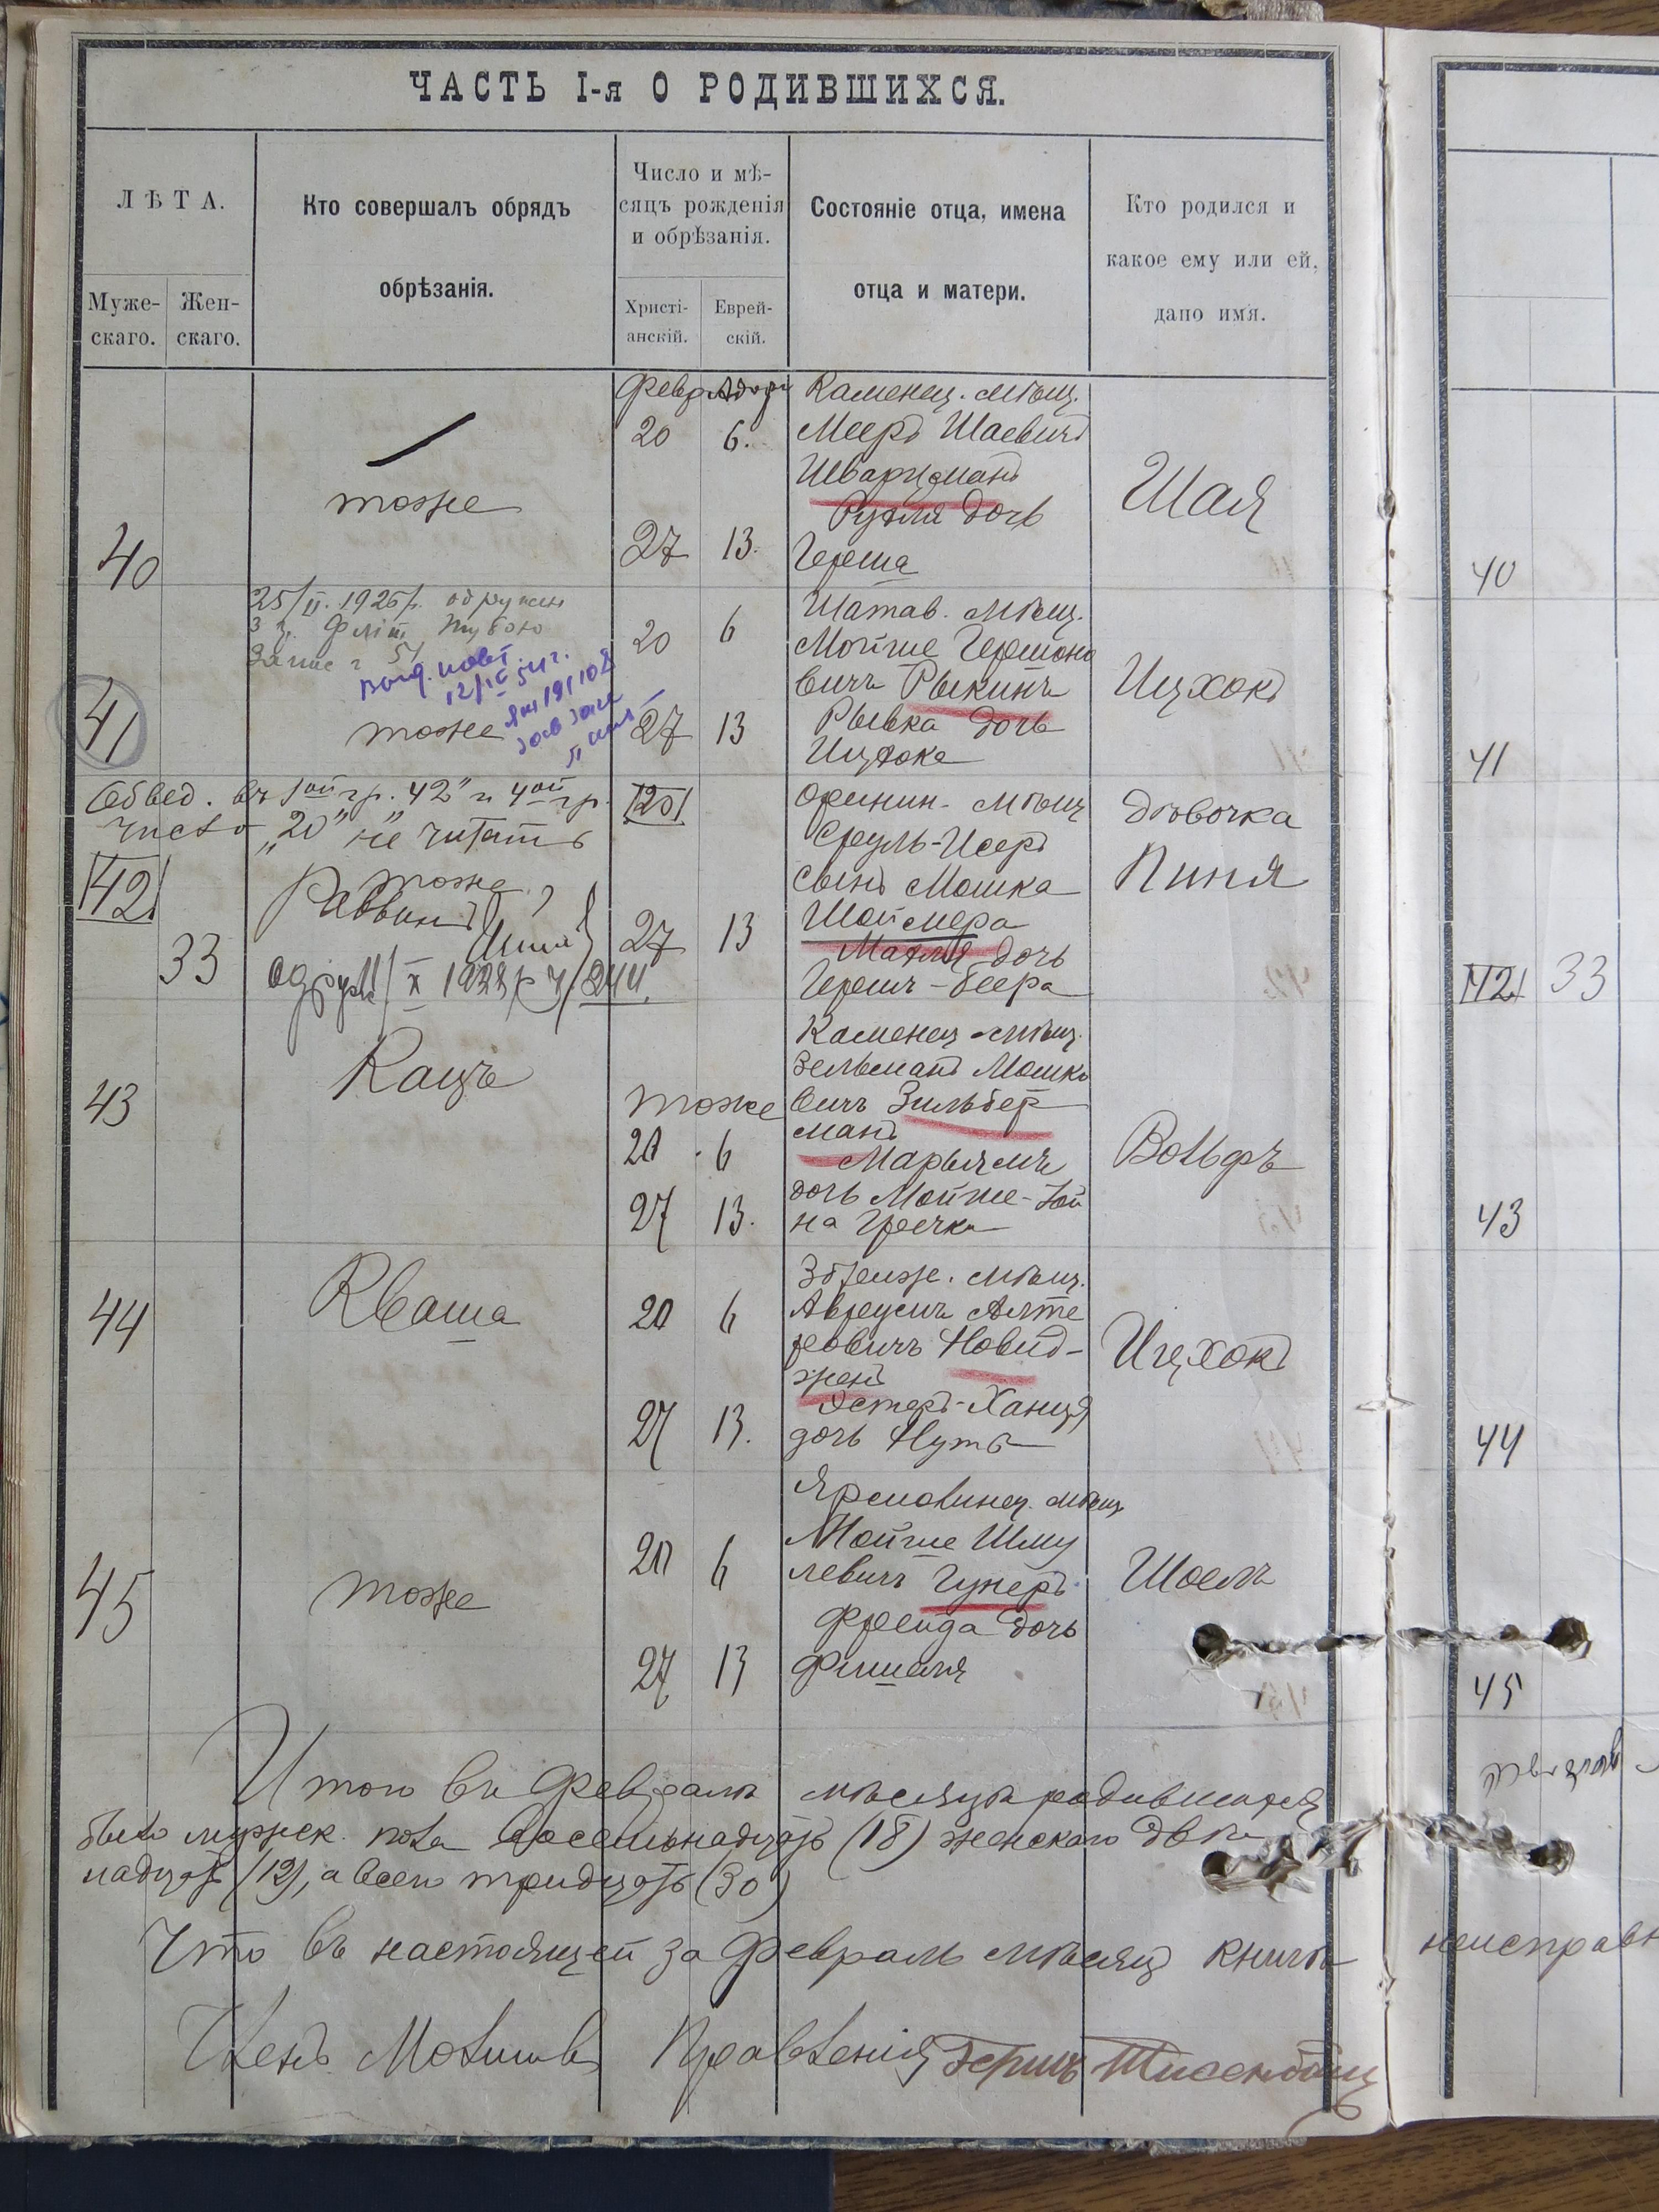 ЧАСТЬ I-я О РОДИВШИХСЯ.
ЛѢТА.
Муже-
скаго.
Жен-
скаго.
Кто совершалъ обрядъ
обрѣзанія.
Число и мѣ-
сяцъ рожденія
и обрѣзанія.
Христі-
анскій.
Еврей-
скій.
Состояніе отца, имена
отца и матери.
Кто родился и
какое ему или ей,
дано имя.
40
тоже
Февр Адоръ
20 6.
27 13.
Каменец. мѣщ.
Мееръ Шаевичъ
Шварцманъ
Рухля дочь
Герша
Шая
40
25/II. 1926 р. одружен
з гр.
Запис ч 51
41
тоже
20 6
27 13
Шатав. мѣщ.
Мойше Гершоно
вичъ Рыкинъ
Рывка дочь
Ицхока
Ицхокъ
41
Обвед. въ 1ой гр. „42" и 4ой гр.
число „20" не читать
42
33
тоже
Раввинъ
1928 р ч 244
20
27 13
Оринин. мѣщ
Сруль-Исеръ
сынъ Мошка
Шойхера
Матля дочь
Герш-Беера
дѣвочка
Пиня
42 33
43
Кацъ
тоже
20 6
27 13.
Каменец. мѣщ.
Зельманъ Мошко
вичъ Зильбер
манъ
Марьямъ
дочь Мойше-Хай
на Гречка
Вольфъ
43
44
Кваша
20 6
27 13.
мѣщ.
Аврумъ Алте
ровичъ Новид-
женъ
Эстеръ-Ханця
дочь Нутъ
Ицхокъ
44
45
тоже
20 6
27 13
Ярмолинец. мѣщ
Мойше Шму
левичъ Гукеръ
Фрейда дочь
Фишеля
Шоель
45
Итого въ Февралѣ мѣсяцѣ родившихся
было мужск. пола восемьнадцать (18) женскаго двѣ
надцать (12), а всего тридцать (30)
Что въ настоящей за Февраль мѣсяцъ книгѣ неисправн
Членъ Молитв. Правленія Гершъ